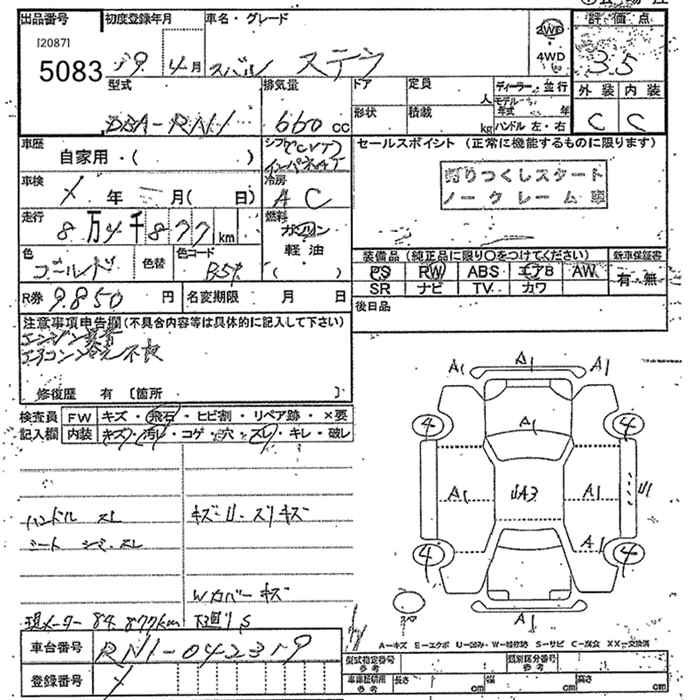 出品番号 初度登録年月 車名・グレード 2WD 評価点
[2087] 5083 19年4月 スバル ステラ 4WD 3.5
型式 排気量 ドア 定員 人 ディーラー・並行 外装 内装
DBA-RN1 660cc 形状 積載 kg モデル年式 年 ハンドル 左・右 C C
車歴 自家用・( ) シフト セールスポイント (正常に機能するものに限ります)
インパネAT
売りつくしスタート
ノークレーム車
車検 年 月( 日) 冷房 AC
走行 8万4千877km 燃料 ガソリン 軽油 ( )
装備品 (純正品に限り○をつけてください) 新車保証書
色 ゴールド 色替 色コード PS RW ABS エアB AW 有・無
SR ナビ TV カワ
R券 9.850円 名変期限 月 日 後日品
注意事項申告欄(不具合内容等は具体的に記入して下さい)
エンジン異音
エアコン冷え不良
修復歴 有 〔箇所 〕
検査員 FW キズ・飛石・ヒビ割・リペア跡・×要
記入欄 内装 キズ・汚レ・コゲ・穴・スレ・キレ・破レ
ハンドル スレ キズ・U・スリキズ
シート シミ・スレ
Wカバーキズ
現メーター 84,877km 下廻りS
A1 A1 A1
4 4
A1
A1 UA3 A1 U1
A1
4 4
A1
A－キズ E－エクボ U－凹み・W－補修跡 S－サビ C－腐食 XX－交換済
車台番号 RN1-042319
型式指定番号 参考 類別区分番号 参考
登録番号 車庫証明用 参考 長さ cm 幅 cm 高さ cm